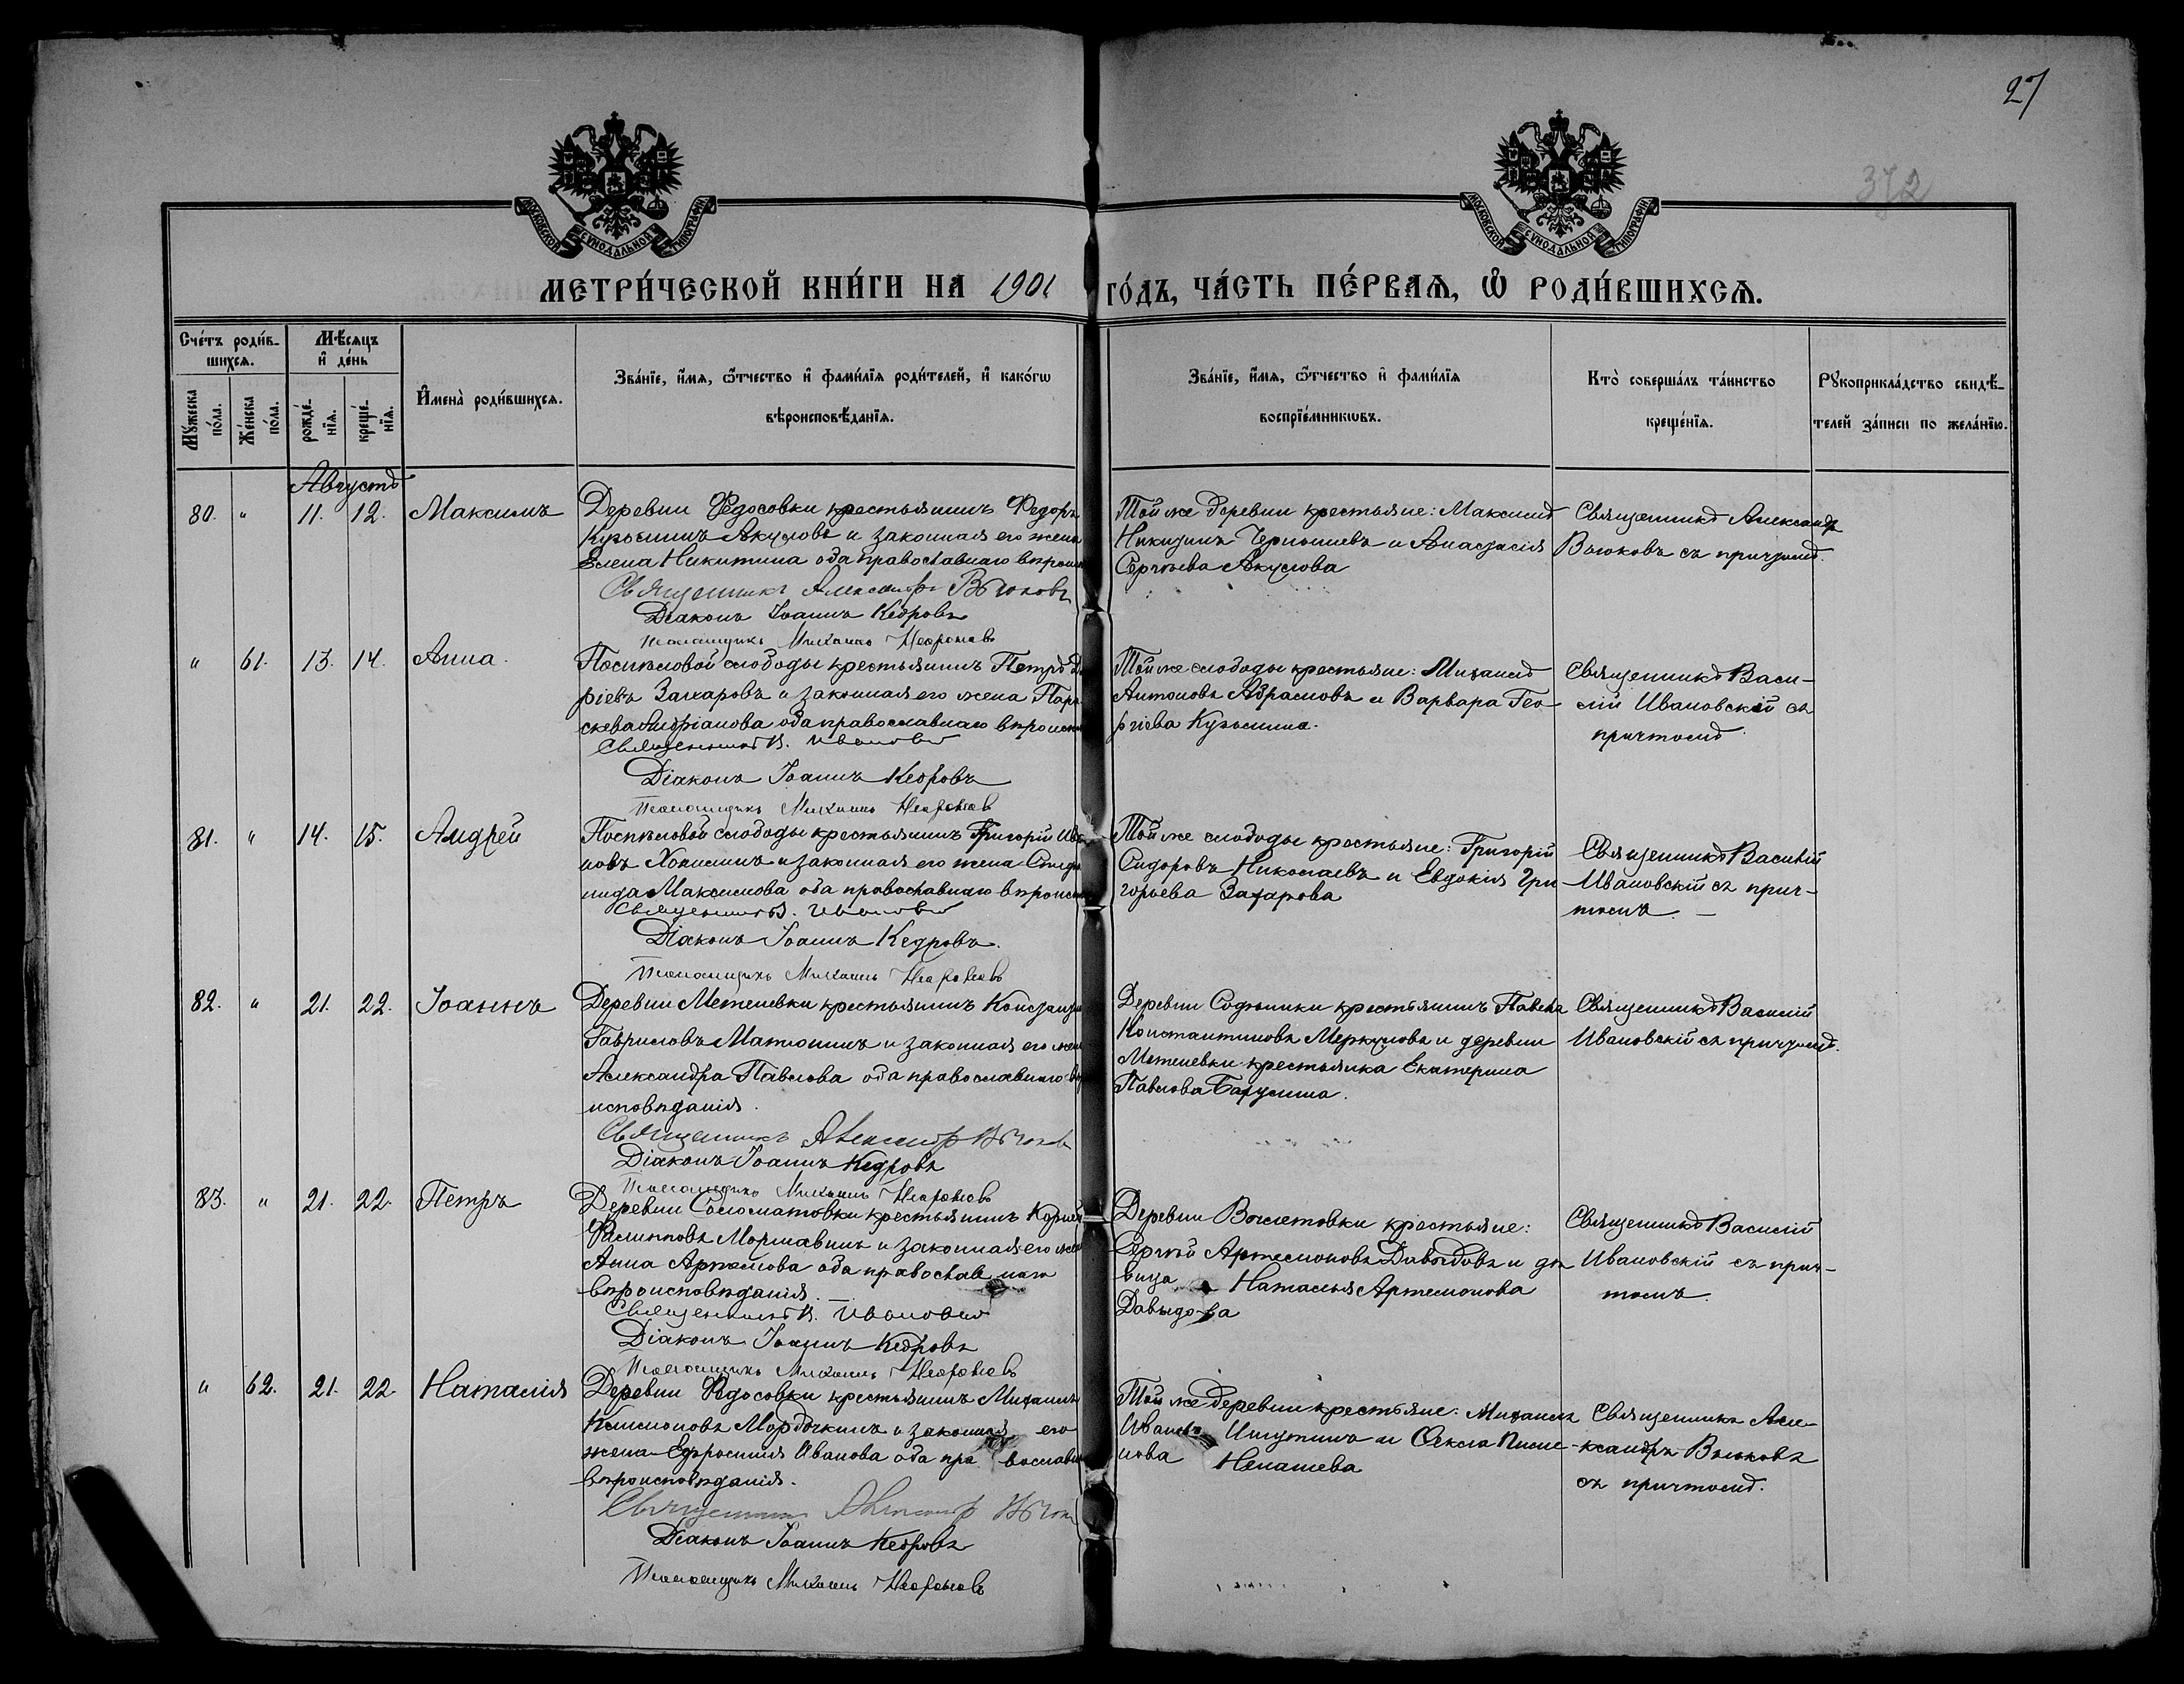 27
372
МОСКОВСКОЙ СѴНОДАЛЬНОЙ ТИПОГРАФІИ
МОСКОВСКОЙ СѴНОДАЛЬНОЙ ТИПОГРАФІИ
МЕТРИ́ЧЕСКОЙ КНИ́ГИ НА 1901 ГО́ДЪ, ЧА́СТЬ ПЕ́РВАѦ, Ѿ РОДИ́ВШИХСѦ.
Сче́тъ роди́в-
шихсѧ.
Мꙋ́жеска
по́ла.
Же́нска
по́ла.
Мѣ́сѧцъ
и҆ де́нь
рожде́-
нїѧ.
креще́-
нїѧ.
И҆мена̀ роди́вшихсѧ.
Зва́нїе, и҆́мѧ, ѻ҆́тчество и҆ фами́лїѧ роди́телей, и҆ како́гѡ
вѣроисповѣ́данїѧ.
Зва́нїе, и҆́мѧ, ѻ҆́тчество и҆ фами́лїѧ
воспрїе́мникѡвъ.
Кто̀ соверша́лъ та́инство
креще́нїѧ.
Рꙋкоприкла́дство свидѣ́-
телей за́писи по жела́нїю.
Августъ
80. " 11. 12. Максимъ
Деревни Ѳедосовки крестьянинъ Ѳедоръ
Кузьминъ Акуловъ и законная его жена
Елена Никитина оба православнаго вѣроис
Священникъ Александръ Вьюковъ
Діаконъ Іоаннъ Кедровъ
Псаломщикъ Михаилъ
Той же деревни крестьяне: Максимъ
Никитинъ Чернышевъ и Анастасія
Сергѣева Акулова
Священникъ Александръ
Вьюковъ съ причтомъ.
" 61. 13. 14. Анна.
Поспѣловой слободы крестьянинъ Петръ
ріевъ Захаровъ и законная его жена Пара
скева Андріанова оба православнаго вѣроиспов
Священникъ В. Ивановскій
Діаконъ Іоаннъ Кедровъ
Псаломщикъ Михаилъ
Той же слободы крестьяне: Михаилъ
Антоновъ Абрамовъ и Варвара Гео-
ргіева Кузьмина.
Священникъ Васи-
лій Ивановскій съ
причтомъ.
81. " 14. 15. Андрей
Поспѣловой слободы крестьянинъ Григорій Ива
новъ и законная его жена Степа
нида Максимова оба православнаго вѣроиспов
Священникъ В. Ивановскій
Діаконъ Іоаннъ Кедровъ.
Псаломщикъ Михаилъ
Той же слободы крестьяне: Григорій
Сидоровъ Николаевъ и Евдокія Гри-
горьева Захарова
Священникъ Василій
Ивановскій съ прич-
томъ. —
82. " 21. 22. Іоаннъ
Деревни Метелевки крестьянинъ Константи
Гавриловъ Матюшинъ и законная его жена
Александра Павлова оба православнаго вѣ
исповѣданія.
Священникъ Александръ Вьюковъ
Діаконъ Іоаннъ Кедровъ
Псаломщикъ Михаилъ
Деревни крестьянинъ Павелъ
Константиновъ Меркуловъ и деревни
Метелевки крестьянка Екатерина
Павлова
Священникъ Василій
Ивановскій съ причтомъ.
83. " 21. 22. Петръ
Деревни Соломатовки крестьянинъ Корней
Филипповъ и законная его жена
Анна Артемова оба православнаго
вѣроисповѣданія. —
Священникъ В. Ивановскій
Діаконъ Іоаннъ Кедровъ
Псаломщикъ Михаилъ
Деревни крестьяне:
Сергѣй Артемоновъ Давыдовъ и дѣ
вица Наталья Артемонова
Давыдова
Священникъ Василій
Ивановскій съ прич-
томъ.
" 62. 21. 22. Наталія
Деревни Ѳедосовки крестьянинъ Михаилъ
Климоновъ Мордочкинъ и законная его
жена Ефросинія Иванова оба пра вославна
вѣроисповѣданія.
Священникъ Александръ Вьюковъ
Діаконъ Іоаннъ Кедровъ
Псаломщикъ Михаилъ
Той же деревни крестьяне: Михаилъ
Ивановъ и Ѳекла
нова Ненашева
Священникъ Але-
ксандръ Вьюковъ
съ причтомъ.